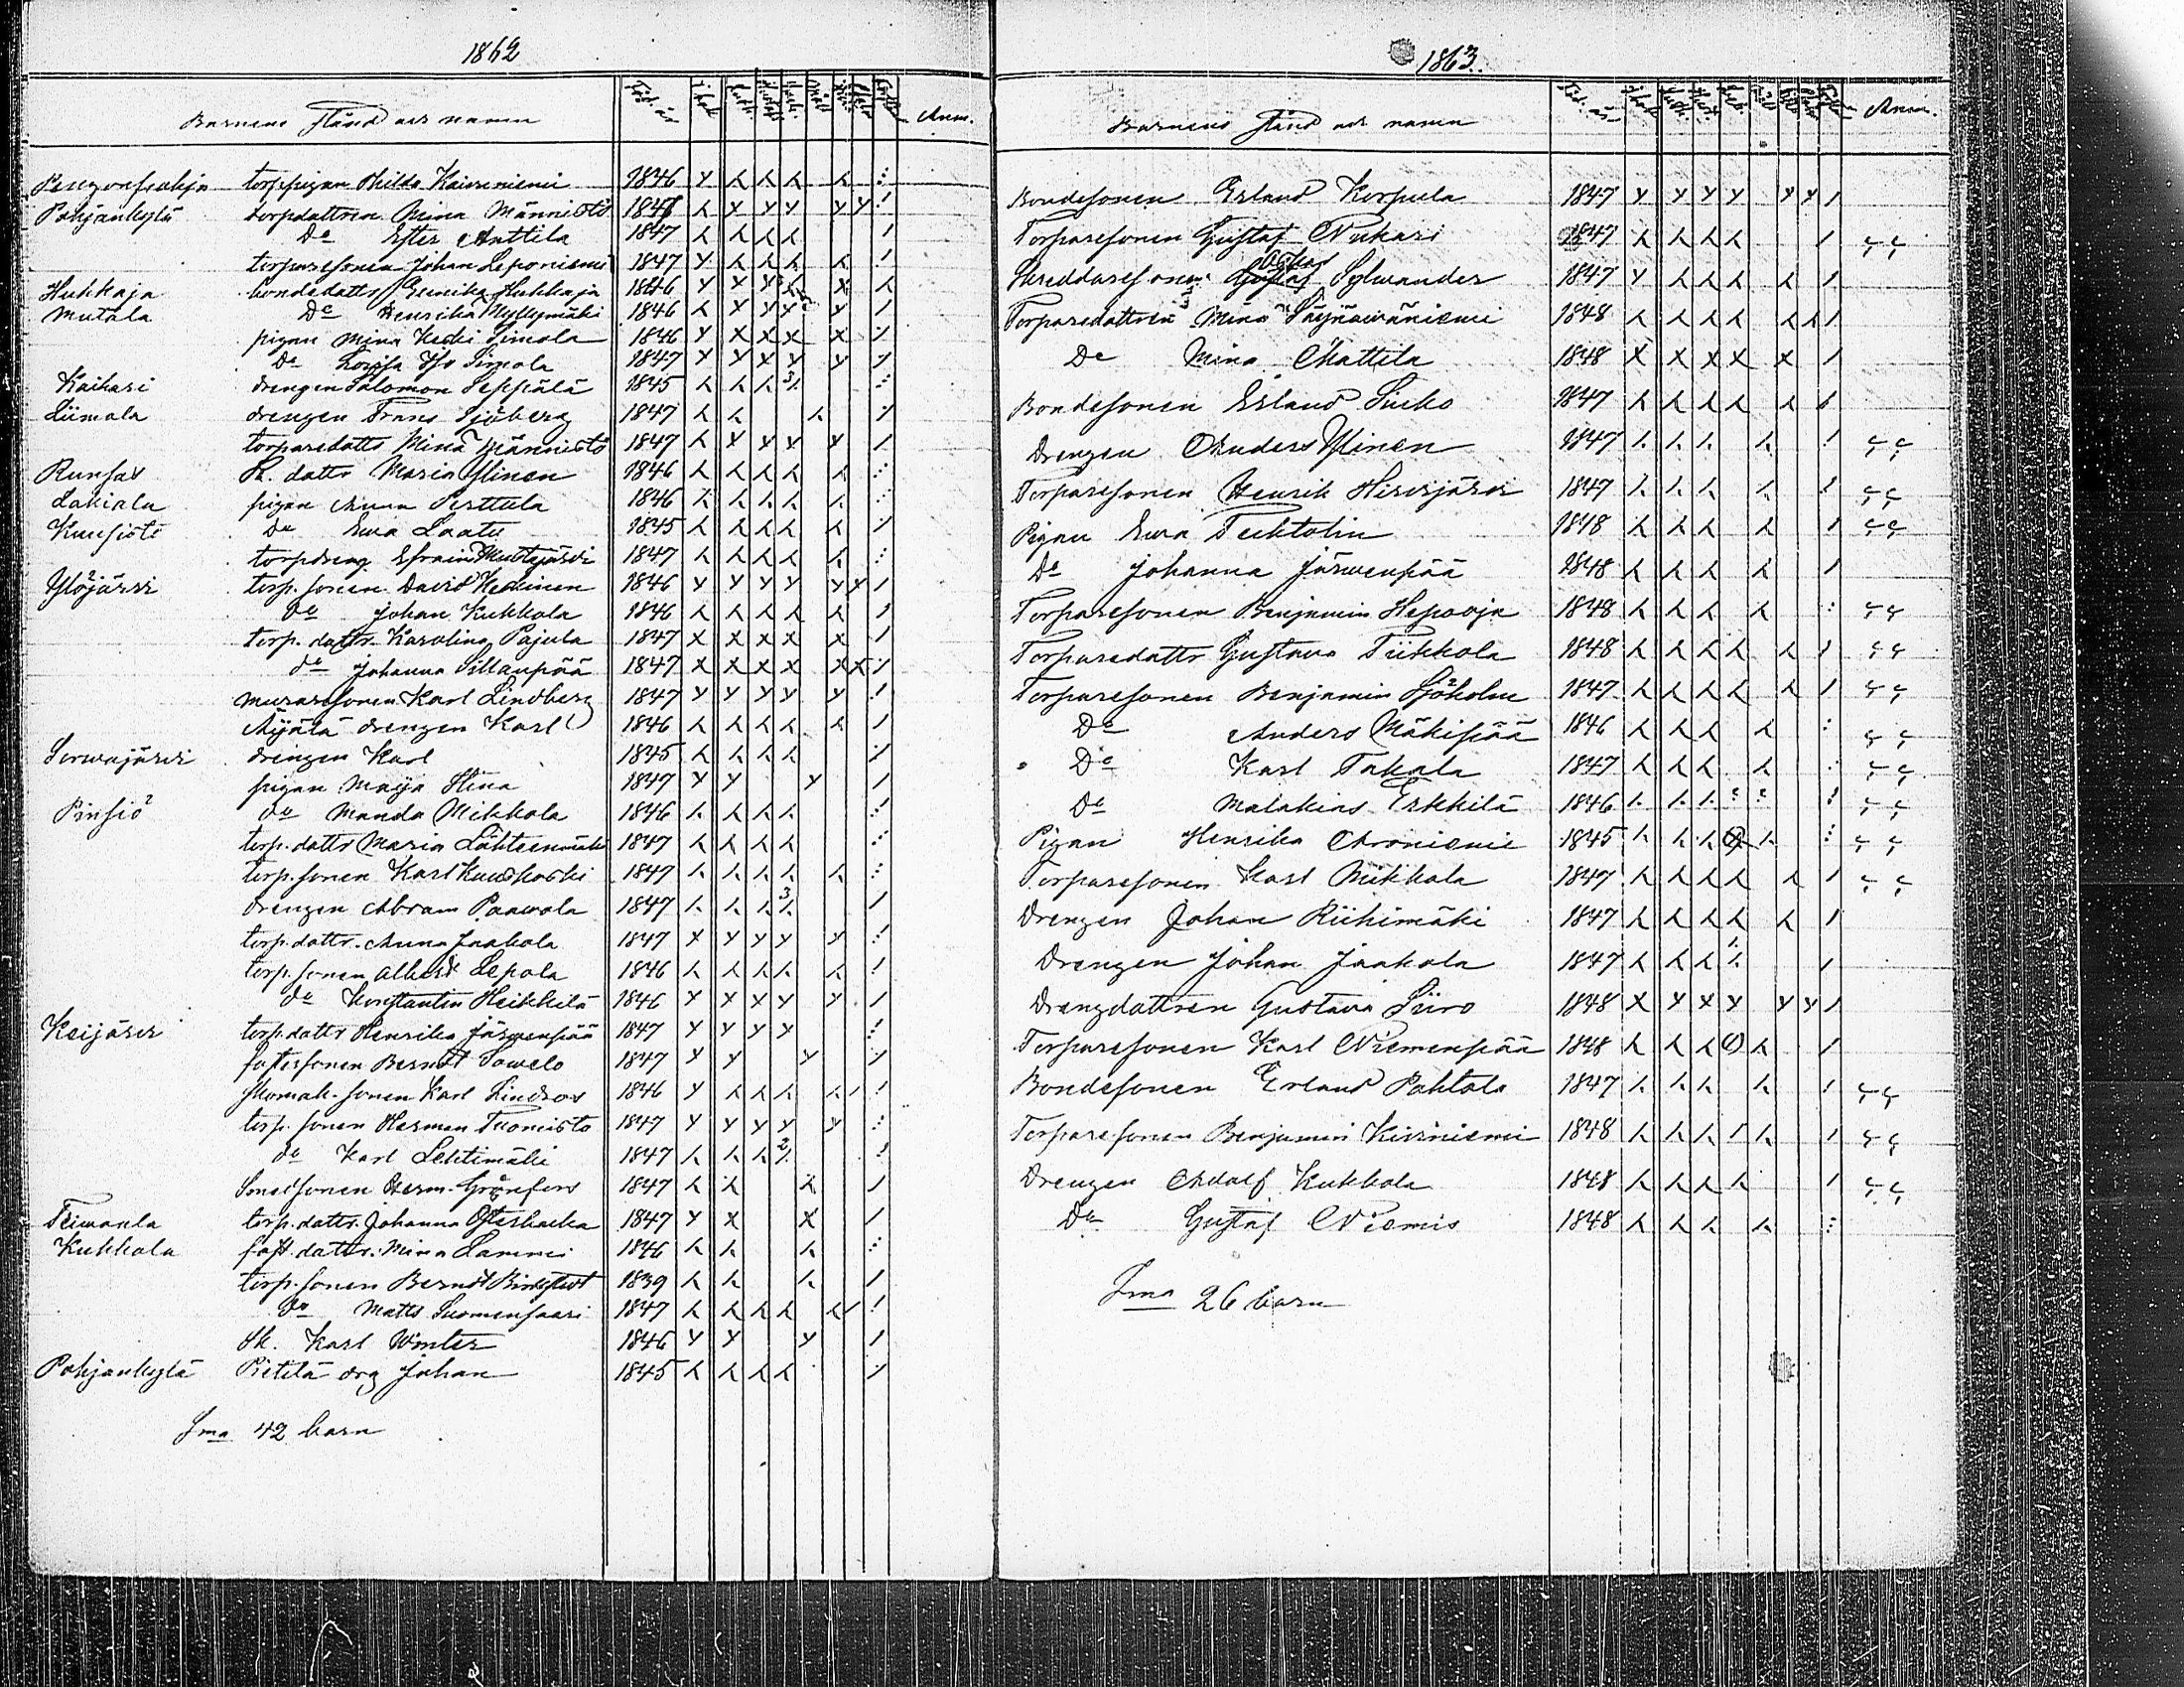 1862
Barnens stånd och namn Föd. år Anm.
torppigan Hilda Kaivuniemi 1846
Pohjankylä torpdattren Mina Männistö 1847
Do Ester Anttila 1847
torparesonen Johan Leponiemi 1847
Huhkaja bondedattr Eerika Huhkaja 1846
Mutala Do Henrika Myllymäki 1846
pigan Mina Simola 1846
Do Lovisa Simola 1847
Kaihari drengen Salomon Seppälä 1845
Liimola drengen Frans Sjöberg 1847
torparedattr Mina Männistö 1847
Runsas Sk. dattr Maria Ylinen 1846
Lakiala pigan Anna Perttula 1846
Kuusisto Do Ewa Laatu 1845
torpdreng Efraim Mustajärvi 1847
Ylöjärvi torp. sonen David Keskinen 1846
Do Johan Kukkola 1846
torp. dattr. Karolina Pajula 1847
do Johanna Sillanpää 1847
muraresonen Karl Lindberg 1847
Äijälä drengen Karl 1846
Serwajärvi drengen Karl 1845
pigan Maija Stina 1847
Pinsiö do Manda Mikkola 1846
torp. dattr Maria Lähteenmäki 1847
torp. sonen Karl Kuuskoski 1847
drengen Abram Paawola 1847
torp. dattr. Anna Jaakola 1847
torp. sonen Albert Lepola 1846
do Konstantin Heikkilä 1846
Keijärvi torp. dattr Henrika Järwenpää 1847
fostersonen Berndt Sawelo 1847
skomak. sonen Karl Lindros 1846
torp. sonen Herman Tuomisto 1847
do Karl Lehtimäki 1847
Smedsonen Herm. Grönfors 1847
Teiwaala torp. dattr. Johanna 1847
Kukkola fost. dattr. Mina Lammi 1846
torp. sonen Berndt 1839
do Matts Suomensaari 1847
Sk. Karl Winter 1846
Pohjankylä Pietilä drg Johan 1845
Sma 42 barn
1863.
Barnens stånd och namn Föd. år Anm.
Bondesonen Erland Korpula 1847
Torparesonen Gustaf Nukari 1847
Skreddaresonen Oskar Sylwander 1847
Torparedattren Mina Säynäwäniemi 1848
Do Mina Mattila 1848
Bondesonen Erland Siuko 1847
Drengen Anders Ylinen 1847
Torparesonen Henrik Hirvijärvi 1847
Pigan Ewa Tecktolin 1848
Do Johanna Järwenpää 1848
Torparesonen Benjamin Hepooja 1848
Torparedattr Gustava Tiikkola 1848
Torparesonen Benjamin Sjöholm 1847
Do Anders Mäkipää 1846
Do Karl Takala 1847
Do Malakias Erkkilä 1846
Pigan Henrika Aroniemi 1845
Torparesonen Karl Mikkola 1847
Drengen Johan Riihimäki 1847
Drengen Johan Jaakola 1847
Drengdattren Gustava Siiro 1848
Torparesonen Karl Niemenpää 1848
Bondesonen Erland Pohtola 1847
Torparesonen Benjamin Kiviniemi 1848
Drengen Adolf Kukkola 1848
Do Gustaf Niemis 1848
Sma 26 barn